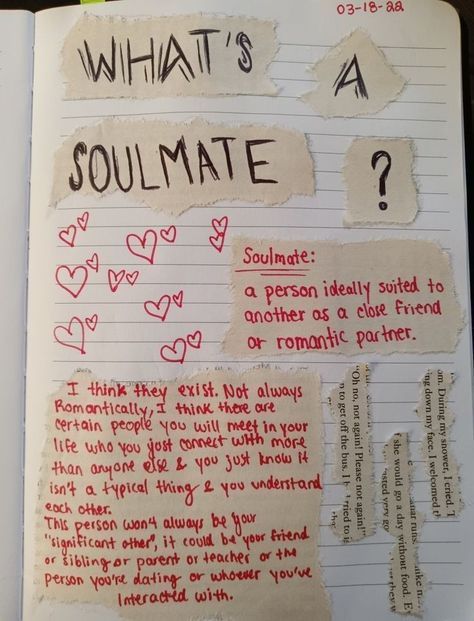 03-18-22
WHAT'S
A
SOULMATE
?
Soulmate:
a person ideally suited to
another as a close friend
or romantic partner.
I think they exist. Not always
Romantically, I think there are
certain people you will meet in your
life who you just connect with more
than anyone else & you just know it
isn't a typical thing & you understand
each other.
This person won't always be your
"significant other", it could be your friend
or sibling or parent or teacher or the
person you're dating or whoever you've
interacted with.
"Oh no, not again! Please not again!"
to get off the bus. I
tried to
she would go a day without food. E
om. During my snower, I cried. T
ing down my face. I welcomed t